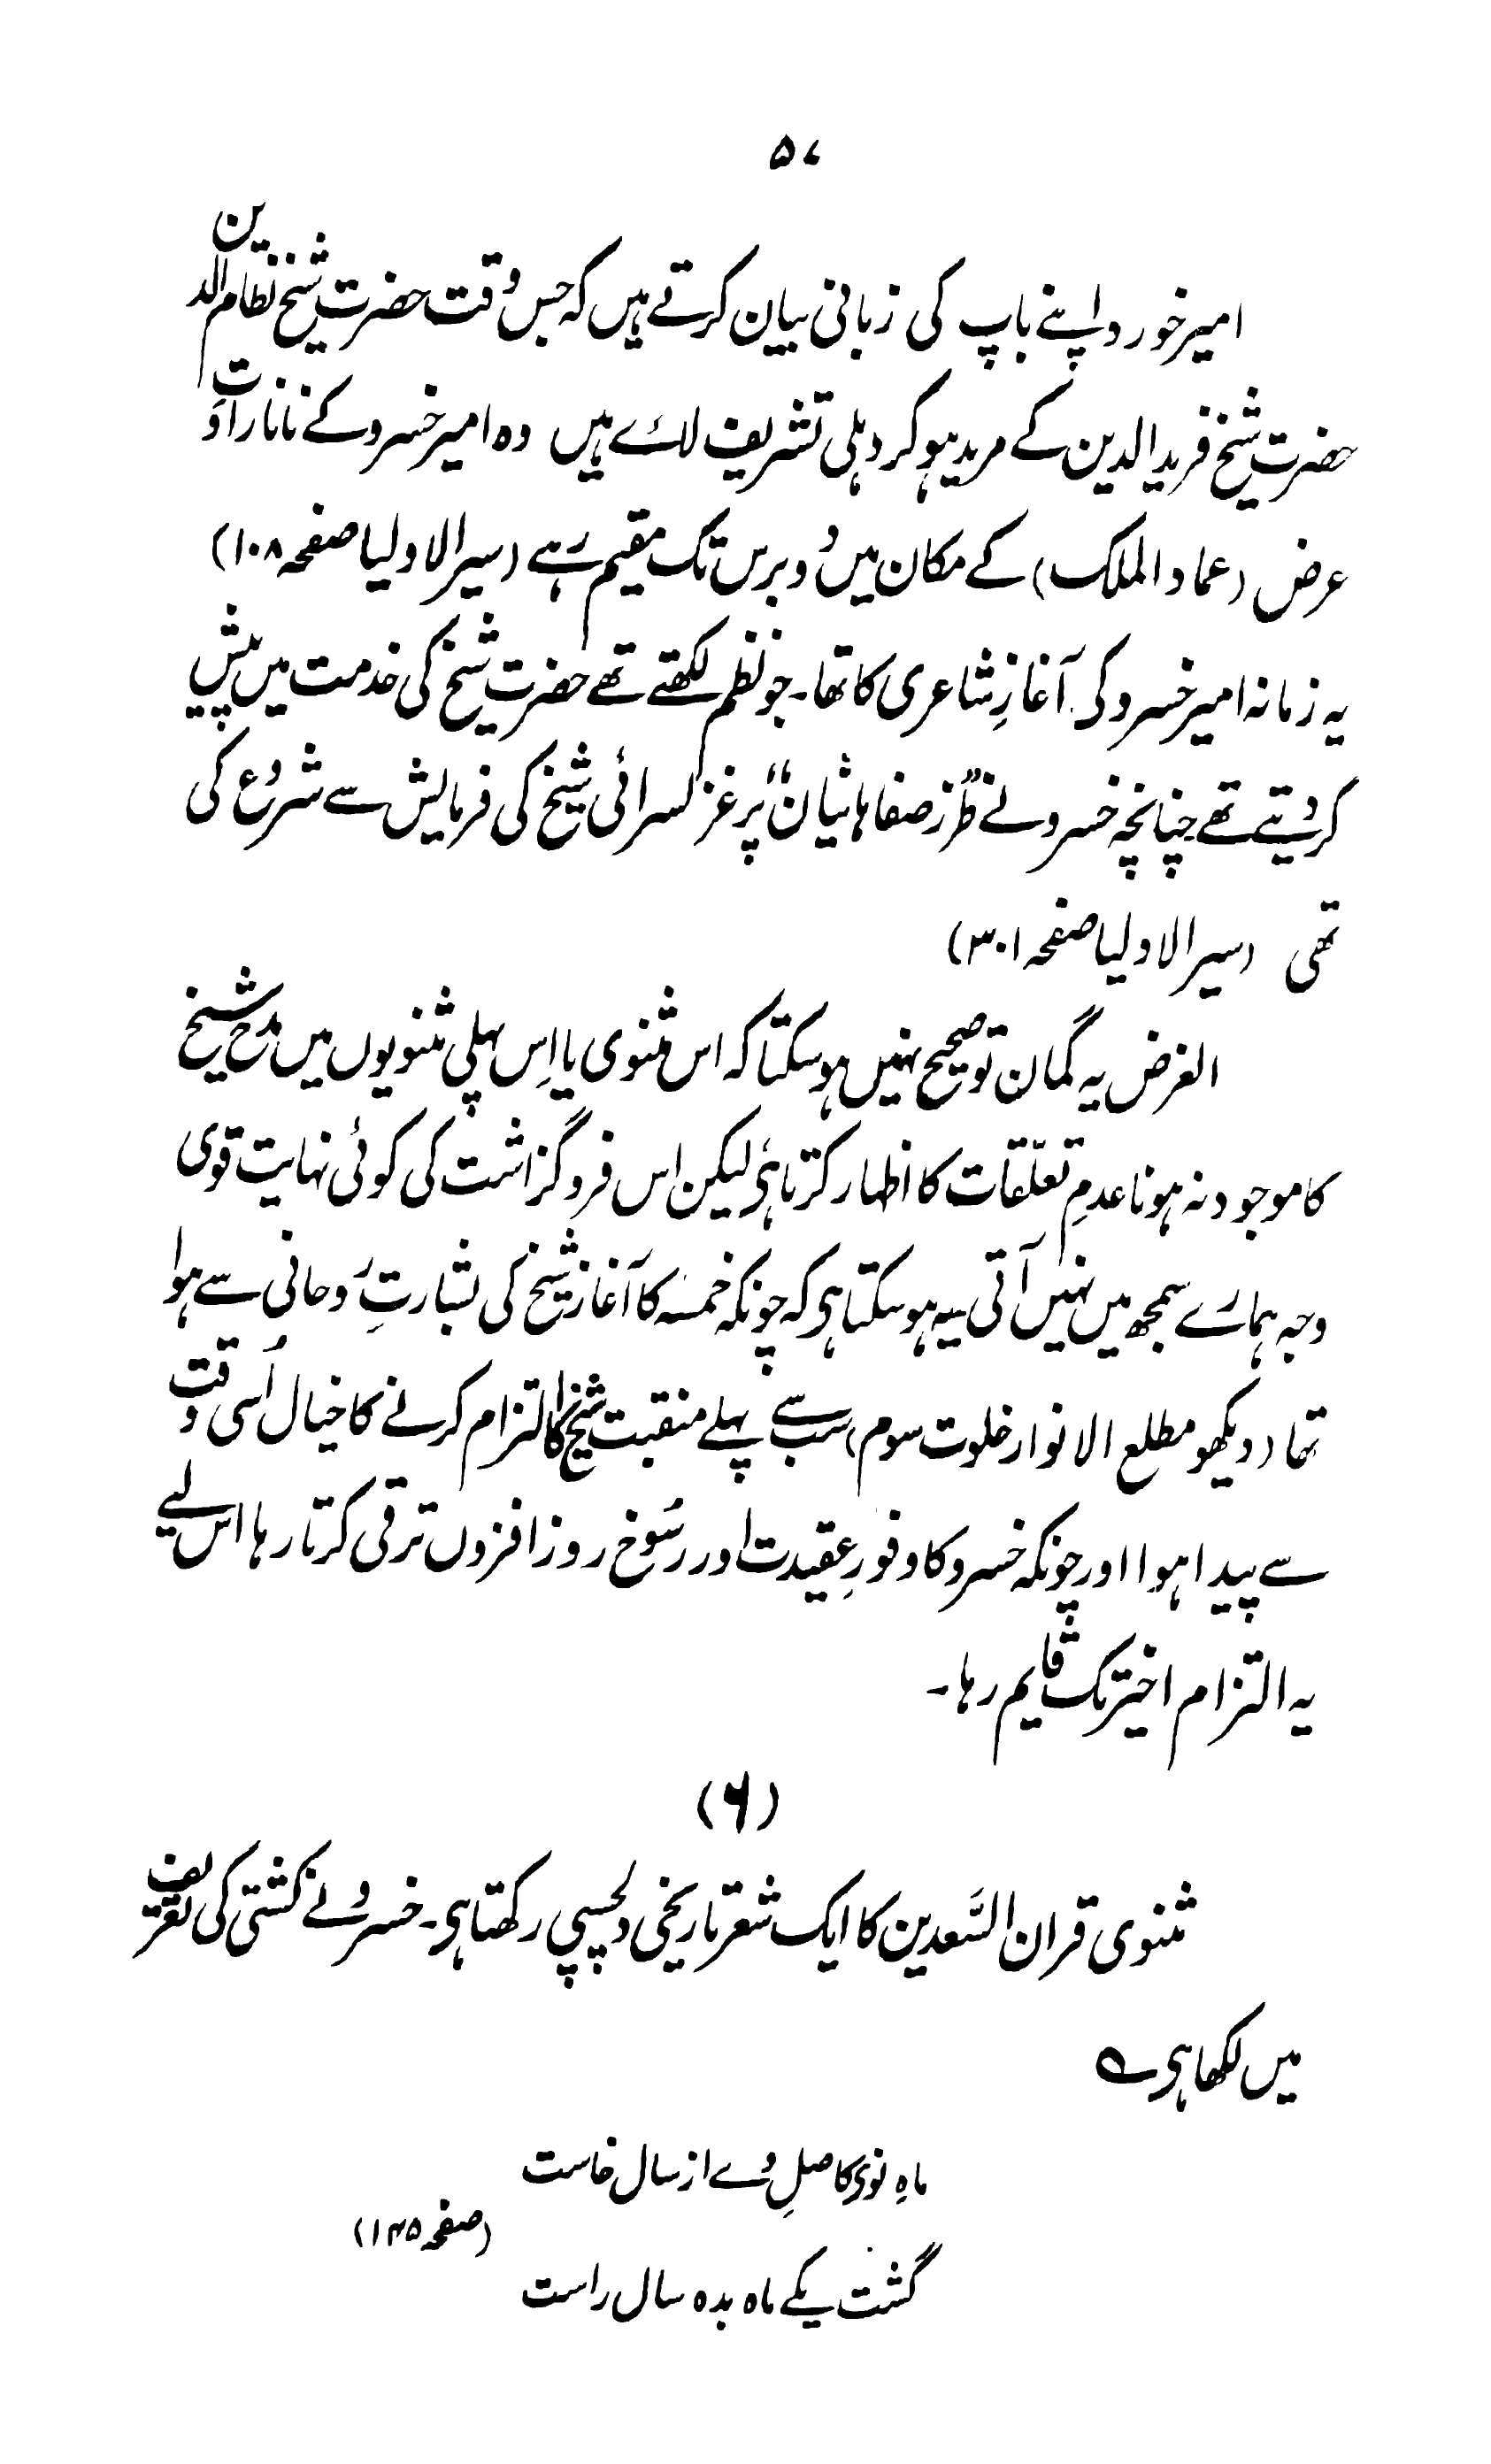 ۵۷
امیر خورد اپنے باپ کی زبانی بیان کرتے ہیں کہ جس وقت حضرت شیخ نظام الدین
حضرت شیخ فرید الدین کے مرید ہو کر دہلی تشریف لائے ہیں وہ امیر خسرو کے نانا راوت
عرض (عماد الملک) کے مکان میں دو برس تک مقیم رہے (سیر الاولیا صفحہ ۱۰۸)
یہ زمانہ امیر خسرو کی آغازِ شاعری کا تھا۔ جو نظم لکھتے تھے حضرت شیخ کی خدمت میں پیش
کر دیتے تھے چنانچہ خسرو نے "طرز صفاہانیان" پر غزلسرائی شیخ کی فرمایش سے شروع کی
تھی (سیر الاولیا صفحہ ۳۰۱)
الغرض یہ گمان تو صحیح نہیں ہو سکتا کہ اس مثنوی یا اِس پہلی مثنویوں میں مدح شیخ
کا موجود نہ ہونا عدمِ تعلّقات کا اظہار کرتا ہی لیکن اس فروگزاشت کی کوئی نہایت قوی
وجہ ہمارے سمجھ میں نہیں آتی یہ ہو سکتا ہی کہ چونکہ خمسہ کا آغاز شیخ کی بشارتِ روحانی سے ہوا
تھا (دیکھو مطلع الانوار خلوت سوم) سب سے پہلے منقبت شیخ کا التزام کرنے کا خیال اُسی وقت
سے پیدا ہوا اور چونکہ خسرو کا وفورِ عقیدت اور رسُوخ روز افزوں ترقی کرتا رہا اس لیے
یہ التزام اخیر تک قایم رہا۔
(۶)
مثنوی قران السَّعدین کا ایک شعر تاریخی دلچسپی رکھتا ہی۔ خسرو نے کشتی کی تعریف
میں لکھا ہی ؎
ماہِ نوی کاصلِ وے از سال خاست
(صفحہ ۱۴۵)
گشت یکے ماہ بدہ سال راست